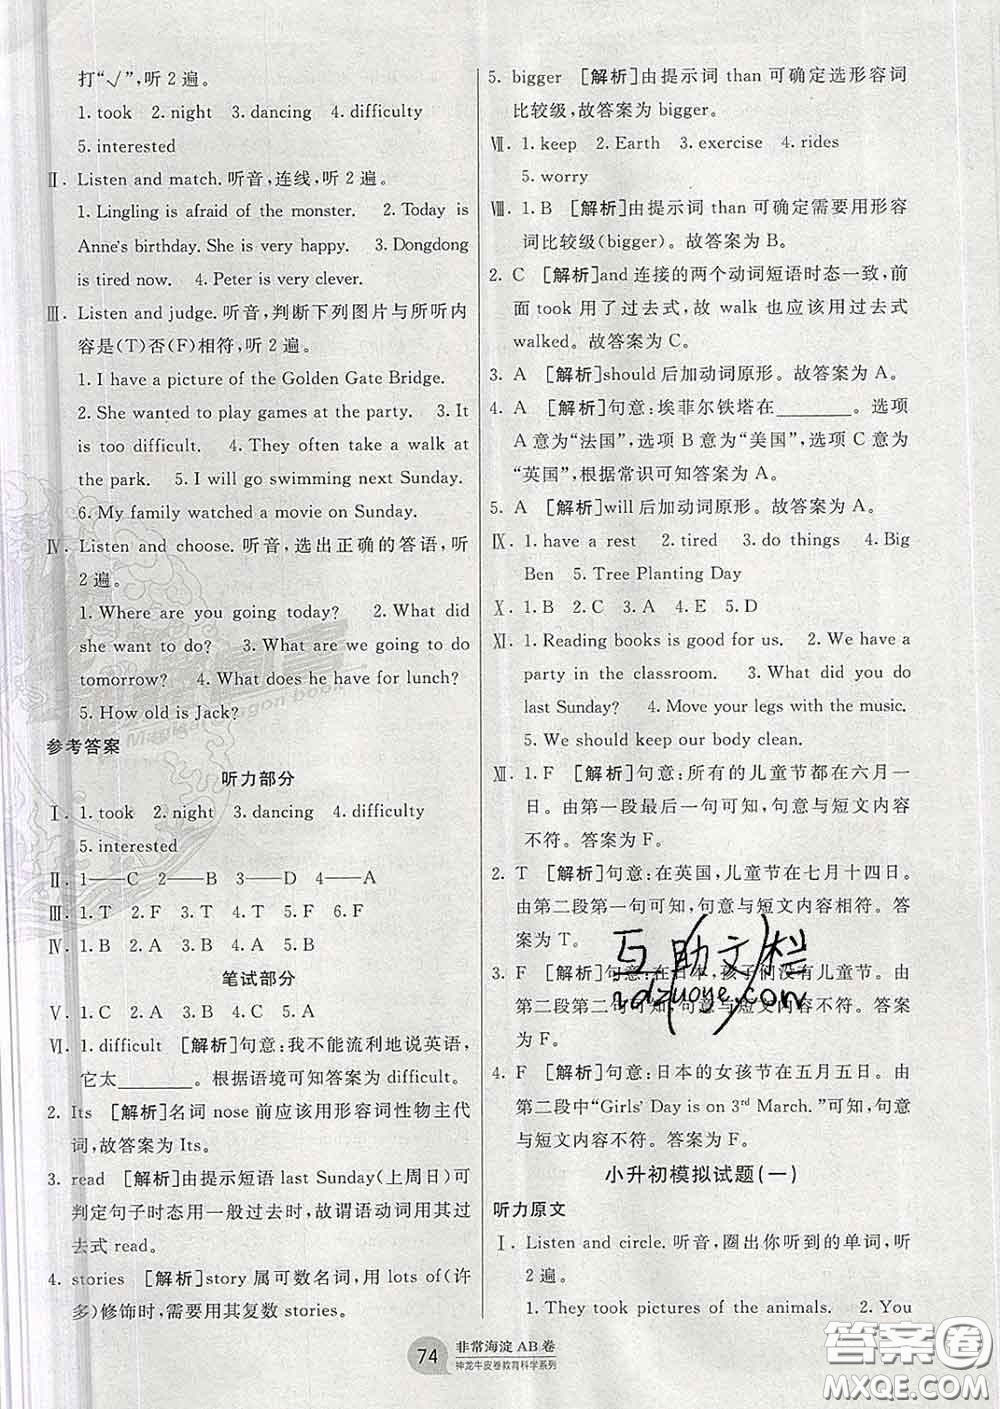 打“√”,听2遍。
1. took 2. night 3. dancing 4. difficulty
5. interested
Ⅱ. Listen and match. 听音,连线,听2遍。
1. Lingling is afraid of the monster. 2. Today is
Anne's birthday. She is very happy. 3. Dongdong
is tired now. 4. Peter is very clever.
Ⅲ. Listen and judge. 听音,判断下列图片与所听内
容是(T)否(F)相符,听2遍。
1. I have a picture of the Golden Gate Bridge.
2. She wanted to play games at the party. 3. It
is too difficult. 4. They often take a walk at
the park. 5. I will go swimming next Sunday.
6. My family watched a movie on Sunday.
Ⅳ. Listen and choose. 听音,选出正确的答语,听
2遍。
1. Where are you going today? 2. What did
she want to do? 3. What are we going to do
tomorrow? 4. What does he have for lunch?
5. How old is Jack?
参考答案
听力部分
Ⅰ. 1. took 2. night 3. dancing 4. difficulty
5. interested
Ⅱ. 1——C 2——B 3——D 4——A
Ⅲ. 1. T 2. F 3. T 4. T 5. T 6. F
Ⅳ. 1. B 2. A 3. B 4. A 5. A
笔试部分
Ⅴ. 1. C 2. A 3. B 4. C 5. A
Ⅵ. 1. difficult [解析]句意:我不能流利地说英语,
它太________。根据语境可知答案为 difficult。
2. Its [解析]名词 nose 前应该用形容词性物主代
词,故答案为 Its。
3. read [解析]由提示短语 last Sunday(上周日)可
判定句子时态用一般过去时,故谓语动词用其过
去式 read。
4. stories [解析]story 属可数名词,用 lots of(许
多)修饰时,需要用其复数 stories。
5. bigger [解析]由提示词 than 可确定选形容词
比较级,故答案为 bigger。
Ⅶ. 1. keep 2. Earth 3. exercise 4. rides
5. worry
Ⅷ. 1. B [解析]由提示词 than 可确定需要用形容
词比较级(bigger)。故答案为 B。
2. C [解析]and 连接的两个动词短语时态一致,前
面 took 用了过去式,故 walk 也应该用过去式
walked。故答案为 C。
3. A [解析]should 后加动词原形。故答案为 A。
4. A [解析]句意:埃菲尔铁塔在________。选项
A 意为“法国”,选项 B 意为“美国”,选项 C 意为
“英国”,根据常识可知答案为 A。
5. A [解析]will 后加动词原形。故答案为 A。
Ⅸ. 1. have a rest 2. tired 3. do things 4. Big
Ben 5. Tree Planting Day
Ⅹ. 1. B 2. C 3. A 4. E 5. D
Ⅺ. 1. Reading books is good for us. 2. We have a
party in the classroom. 3. What did you do
last Sunday? 4. Move your legs with the music.
5. We should keep our body clean.
Ⅻ. 1. F [解析]句意:所有的儿童节都在六月一
日。由第一段最后一句可知,句意与短文内容
不符。答案为 F。
2. T [解析]句意:在英国,儿童节在七月十四日。
由第二段第一句可知,句意与短文内容相符。答
案为 T。
3. F [解析]句意:在日本,孩子们没有儿童节。由
第二段第二句可知,句意与短文内容不符。答案
为 F。
4. F [解析]句意:日本的女孩节在五月五日。由
第二段中“Girls' Day is on 3rd March.”可知,句意
与短文内容不符。答案为 F。
小升初模拟试题(一)
听力原文
Ⅰ. Listen and circle. 听音,圈出你听到的单词,听
2遍。
1. They took pictures of the animals. 2. You
74
非常海淀 AB 卷
神龙牛皮卷教育科学系列
互助文栏
答案卷
MXQE.COM